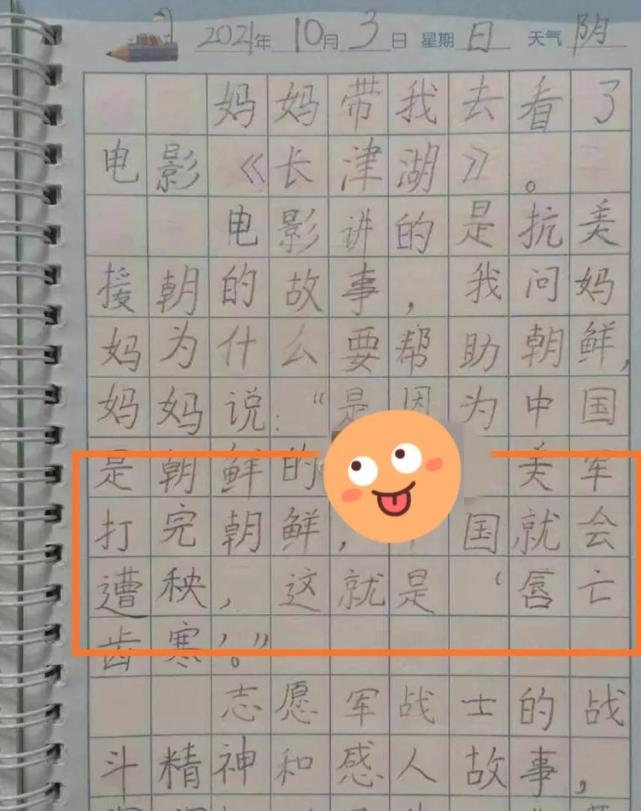 2021年10月3日 星期日 天气阴
妈妈带我去看了
电影《长津湖》。
电影讲的是抗美
援朝的故事，我问妈
妈为什么要帮助朝鲜，
妈妈说：“是因为中国
是朝鲜的 美军
打完朝鲜， 国就会
遭秧，这就是‘唇亡
齿寒’。”
志愿军战士的战
斗精神和感人故事，